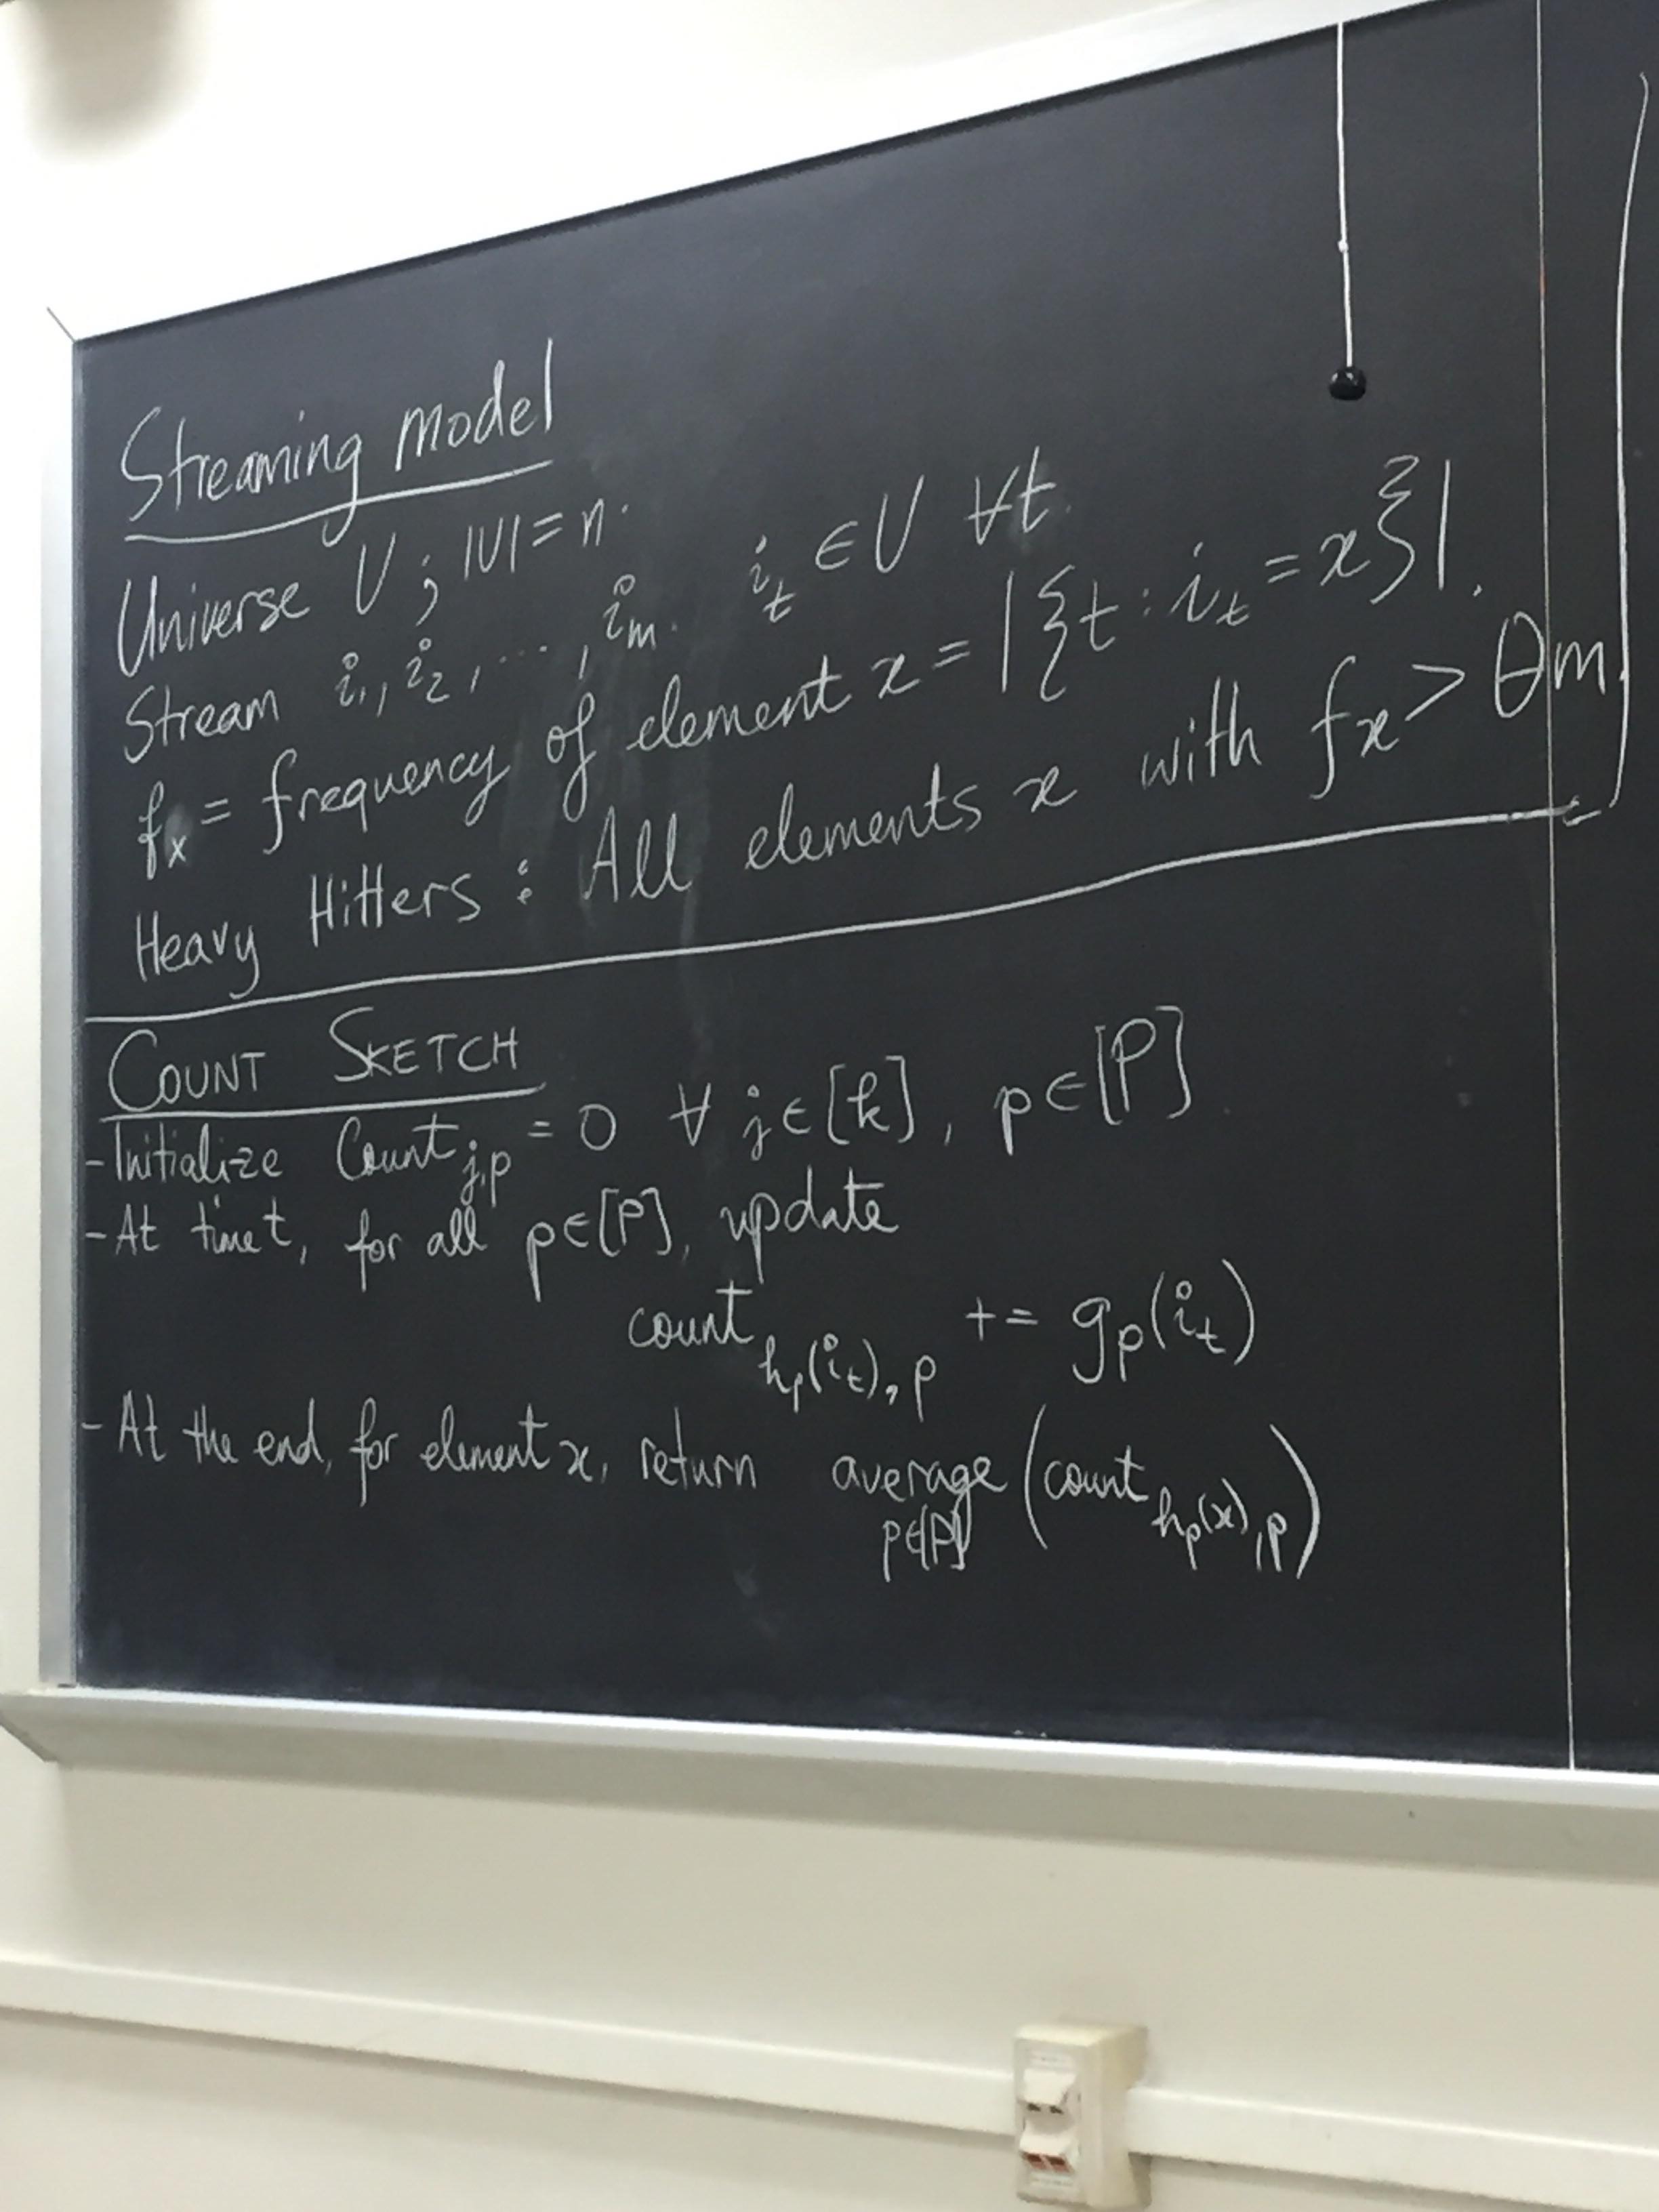 Streaming model
Universe U ; |U| = n.
Stream i₁, i₂, ..., iₘ. iₜ ∈ U ∀t.
fₓ = frequency of element x = |{t : iₜ = x}|.
Heavy Hitters : All elements x with fₓ > θm.
COUNT SKETCH
- Initialize Count_{j,p} = 0 ∀ j ∈ [k], p ∈ [P]
- At time t, for all p ∈ [P], update
count_{hₚ(iₜ), p} += gₚ(iₜ)
- At the end, for element x, return average_{p∈[P]} (count_{hₚ(x), p})